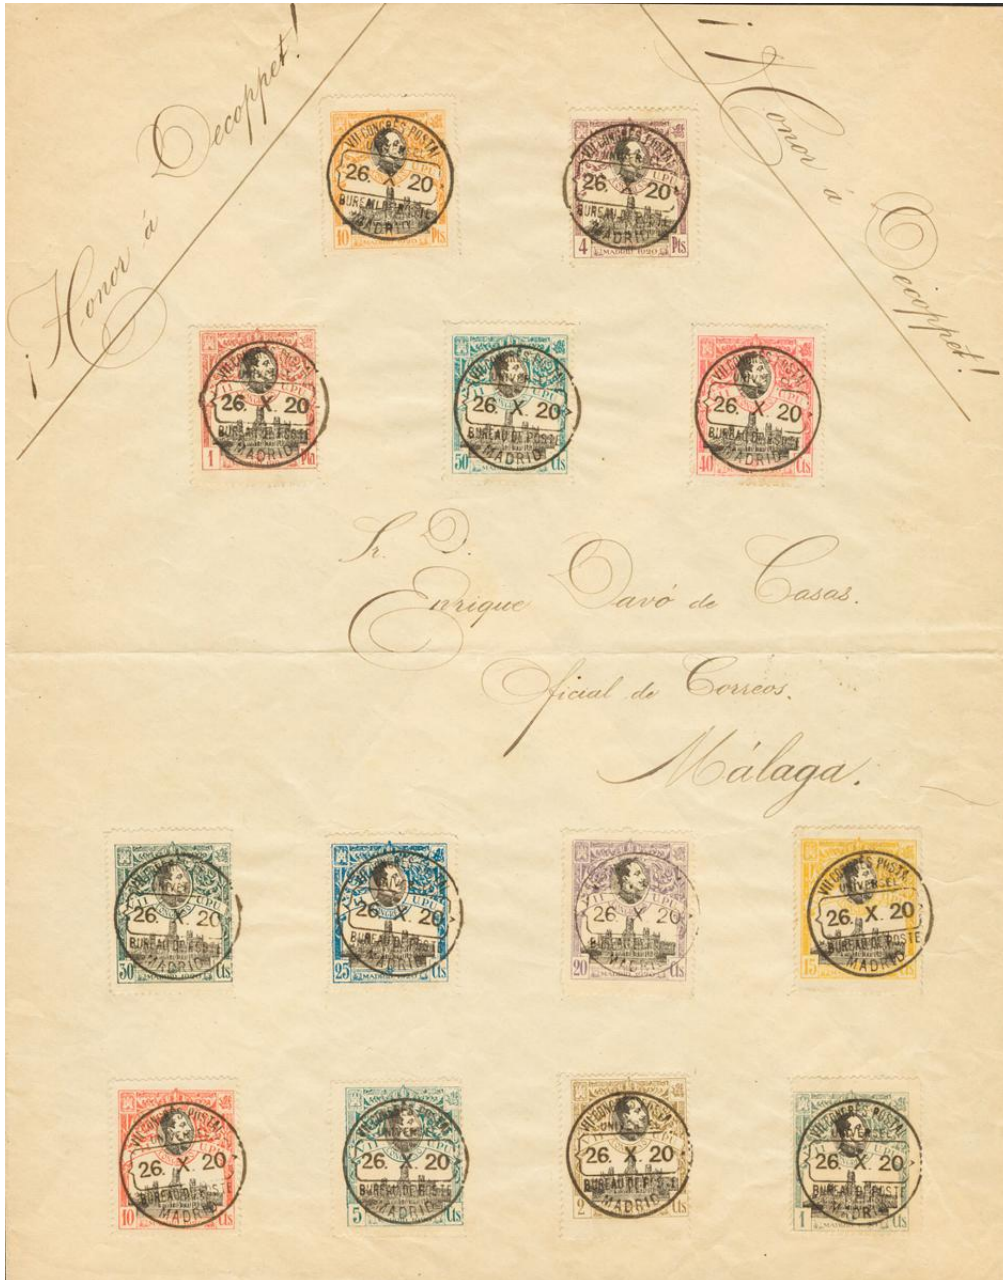 ¡Honor á Decoppet!
¡Honor á Decoppet!
VII CONGRÈS POSTAL
26. X 20
BUREAU DE POSTE
MADRID
UPU
10 Pts
MADRID 1920
VII CONGRÈS POSTAL
26. X 20
BUREAU DE POSTE
MADRID
UPU
4 Pts
MADRID 1920
VII CONGRÈS POSTAL
26. X 20
BUREAU DE POSTE
MADRID
UPU
1 Pta
VII CONGRÈS POSTAL
26. X 20
BUREAU DE POSTE
MADRID
UPU
50 Cts
VII CONGRÈS POSTAL
26. X 20
BUREAU DE POSTE
MADRID
UPU
40 Cts
Sr. D.
Enrique Davó de Casas.
Oficial de Correos.
Málaga.
VII CONGRÈS POSTAL
UNIVERSEL
26. X 20
BUREAU DE POSTE
MADRID
UPU
30 Cts
MADRID 1920
VII CONGRÈS POSTAL
UNIVERSEL
26. X 20
BUREAU DE POSTE
MADRID
UPU
25 Cts
MADRID 1920
26. X 20
BUREAU DE POSTE
MADRID
UPU
20 Cts
MADRID 1920
VII CONGRÈS POSTAL
UNIVERSEL
26. X. 20
BUREAU DE POSTE
MADRID
15 Cts
VII CONGRÈS POSTAL
UNIVERSEL
26. X 20
BUREAU DE POSTE
MADRID
10 Cts
VII CONGRÈS POSTAL
UNIVERSEL
26. X 20
BUREAU DE POSTE
MADRID
5 Cts
VII CONGRÈS POSTAL
UNIVERSEL
26. X 20
BUREAU DE POSTE
MADRID
2 Cts
VII CONGRÈS POSTAL
UNIVERSEL
26. X 20
BUREAU DE POSTE
MADRID
1 Cts